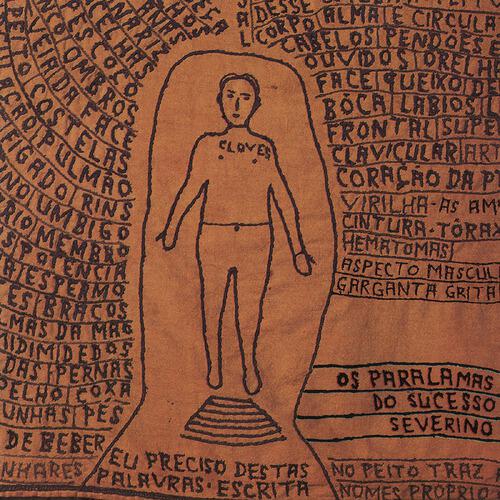 DESSE
CORPO ALMA E CIRCULA
CABELOS PENDÕES E
OUVIDOS ORELHA
FACE QUEIXO DE
BOCA LABIOS E
FRONTAL SUPE
CLAVICULAR ART
CORAÇÃO DA
VIRILHA - AS AM
CINTURA - TÔRAX
HEMATOMAS
ASPECTO MASCUL
GARGANTA GRITA
OS PARALAMAS
DO SUCESSO
SEVERINO
NO PEITO TRAZ
NOMES PRÓPRIO
OMBROS
VEIA DA FACE
COSTELAS
PULMÃO
FIGADO RINS
UMBIGO
RIO MEMBRO
POTENCIA
ESPERMO
ES BRAÇOS
MAS DA MÃO
DEDOS
DAS PERNAS
OELHO COXA
UNHAS PÉS
DE BEBER
NHARES
CLOVES
EU PRECISO DESTAS
PALAVRAS - ESCRITA